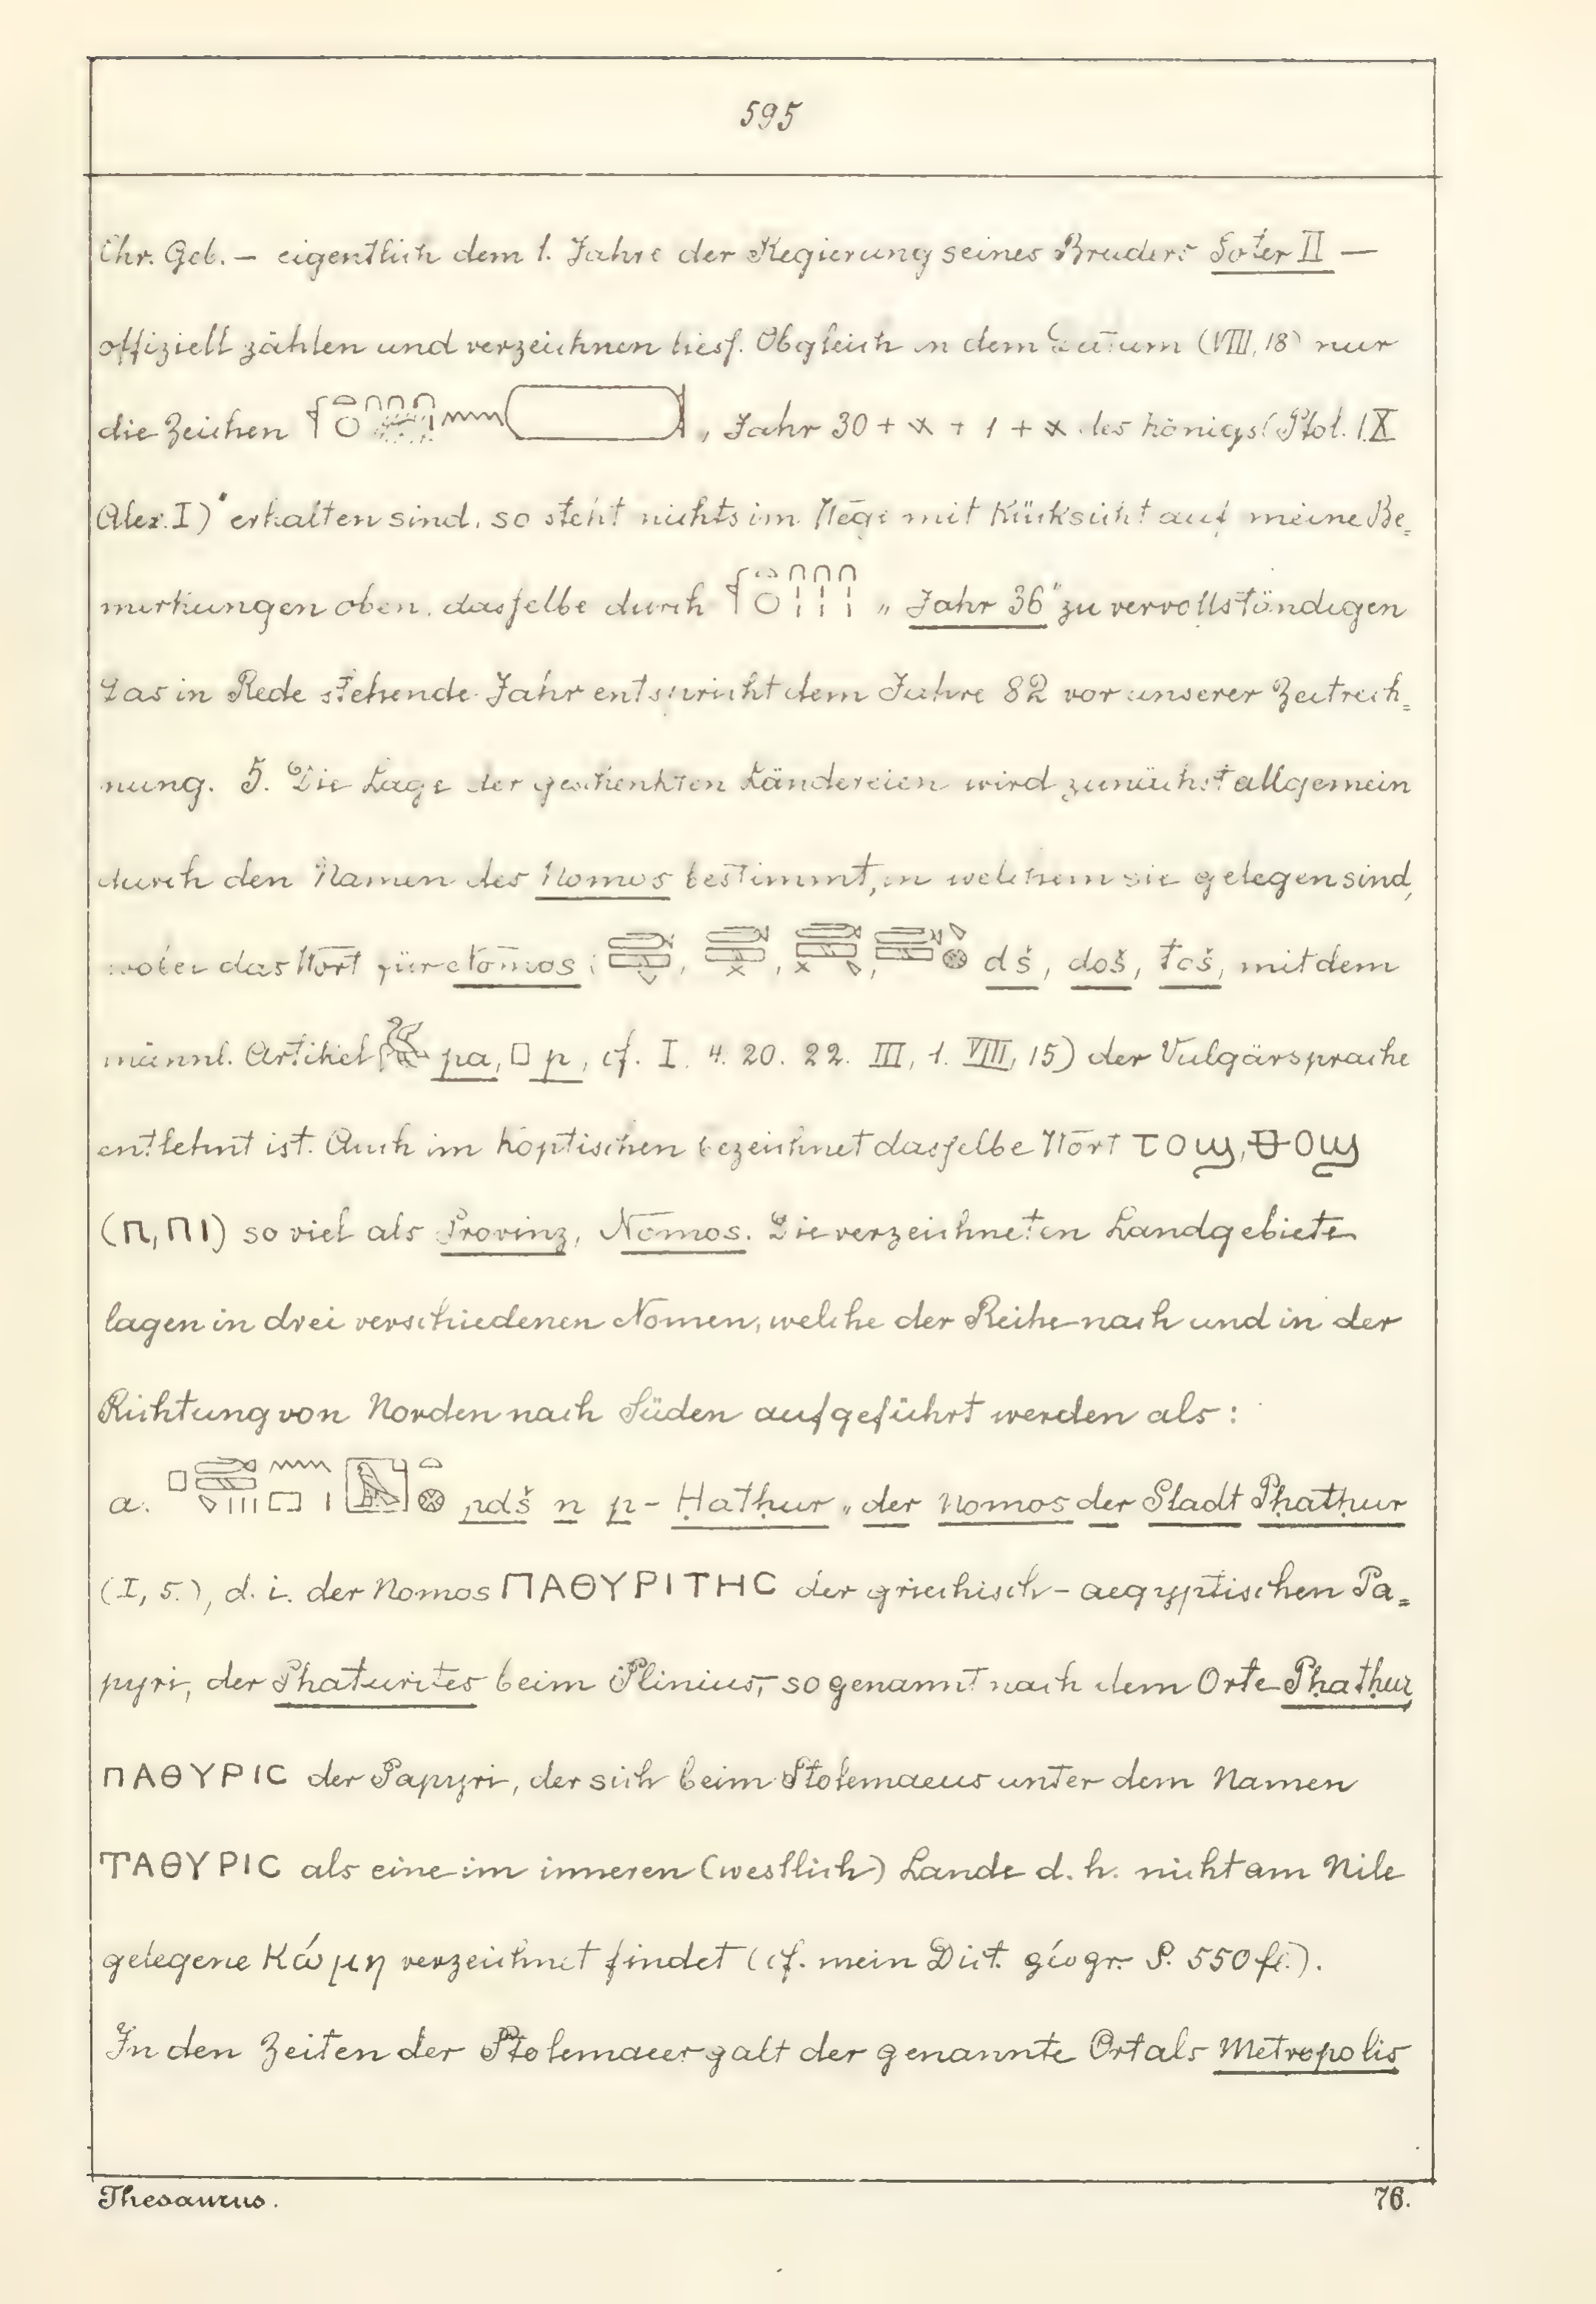 595
Chr. Geb. – eigentlich dem 1. Jahre der Regierung seines Bruders Soter II –
offiziell zählen und verzeichnen liess. Obgleich in dem Datum (VIII, 18) nur
die Zeichen , Jahr 30 + x + 1 + x des Königs (Ptol. IX
Alex. I)" erhalten sind, so steht nichts im Wege mit Rücksicht auf meine Be=
merkungen oben, dasselbe durch „Jahr 36" zu vervollständigen
Das in Rede stehende Jahr entspricht dem Jahre 82 vor unserer Zeitrech=
nung. 5. Die Lage der geschenkten Ländereien wird zunächst allgemein
durch den Namen des Nomos bestimmt, in welchem sie gelegen sind,
wobei das Wort für Nomos: , , , dš, doš, toš, mit dem
männl. Artikel pa, p, cf. I, 4. 20. 22. III, 1. VIII, 15) der Vulgärsprache
entlehnt ist. Auch im Koptischen bezeichnet dasselbe Wort ⲧⲟϣ, ⲑⲟϣ
(ⲡ, ⲡⲓ) so viel als Provinz, Nomos. Die verzeichneten Landgebiete
lagen in drei verschiedenen Nomen, welche der Reihe nach und in der
Richtung von Norden nach Süden aufgeführt werden als:
a. pdš n p-Ḥatḥur „der Nomos der Stadt Pḥatḥur
(I, 5.), d. i. der Nomos ΠΑΘΥΡΙΤΗC der griechisch-aegyptischen Pa=
pyri, der Phaturites beim Plinius, so genannt nach dem Orte Pḥatḥur,
ΠΑΘΥΡΙC der Papyri, der sich beim Ptolemaeus unter dem Namen
ΤΑΘΥΡΙC als eine im inneren (westlich) Lande d. h. nicht am Nile
gelegene Κώμη verzeichnet findet (cf. mein Dict. géogr. S. 550 fl.).
In den Zeiten der Ptolemaeer galt der genannte Ort als Metropolis
Thesaurus. 76.